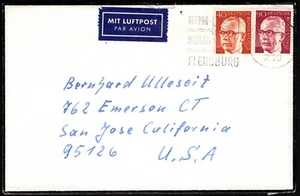 MIT LUFTPOST
PAR AVION
RUM
FLENSBURG
40
90
Bernhard Ulleseit
762 Emerson CT
San Jose California
95126 U.S.A